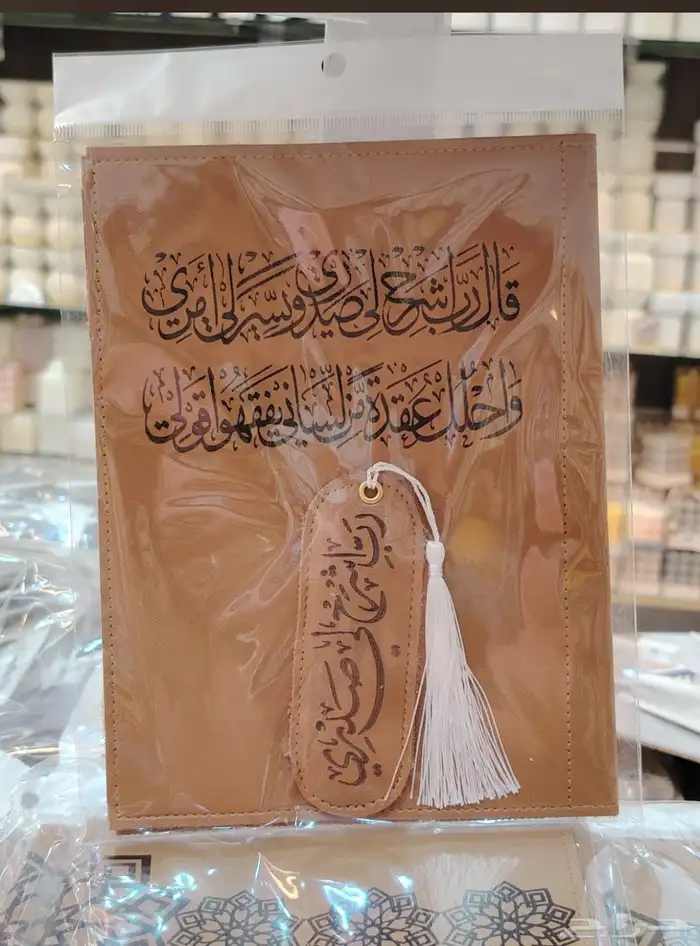 قَالَ رَبِّ اشْرَحْ لِي صَدْرِي وَيَسِّرْ لِي أَمْرِي
وَاحْلُلْ عُقْدَةً مِّن لِّسَانِي يَفْقَهُوا قَوْلِي
رَبِّ اشْرَحْ لِي صَدْرِي
حراج